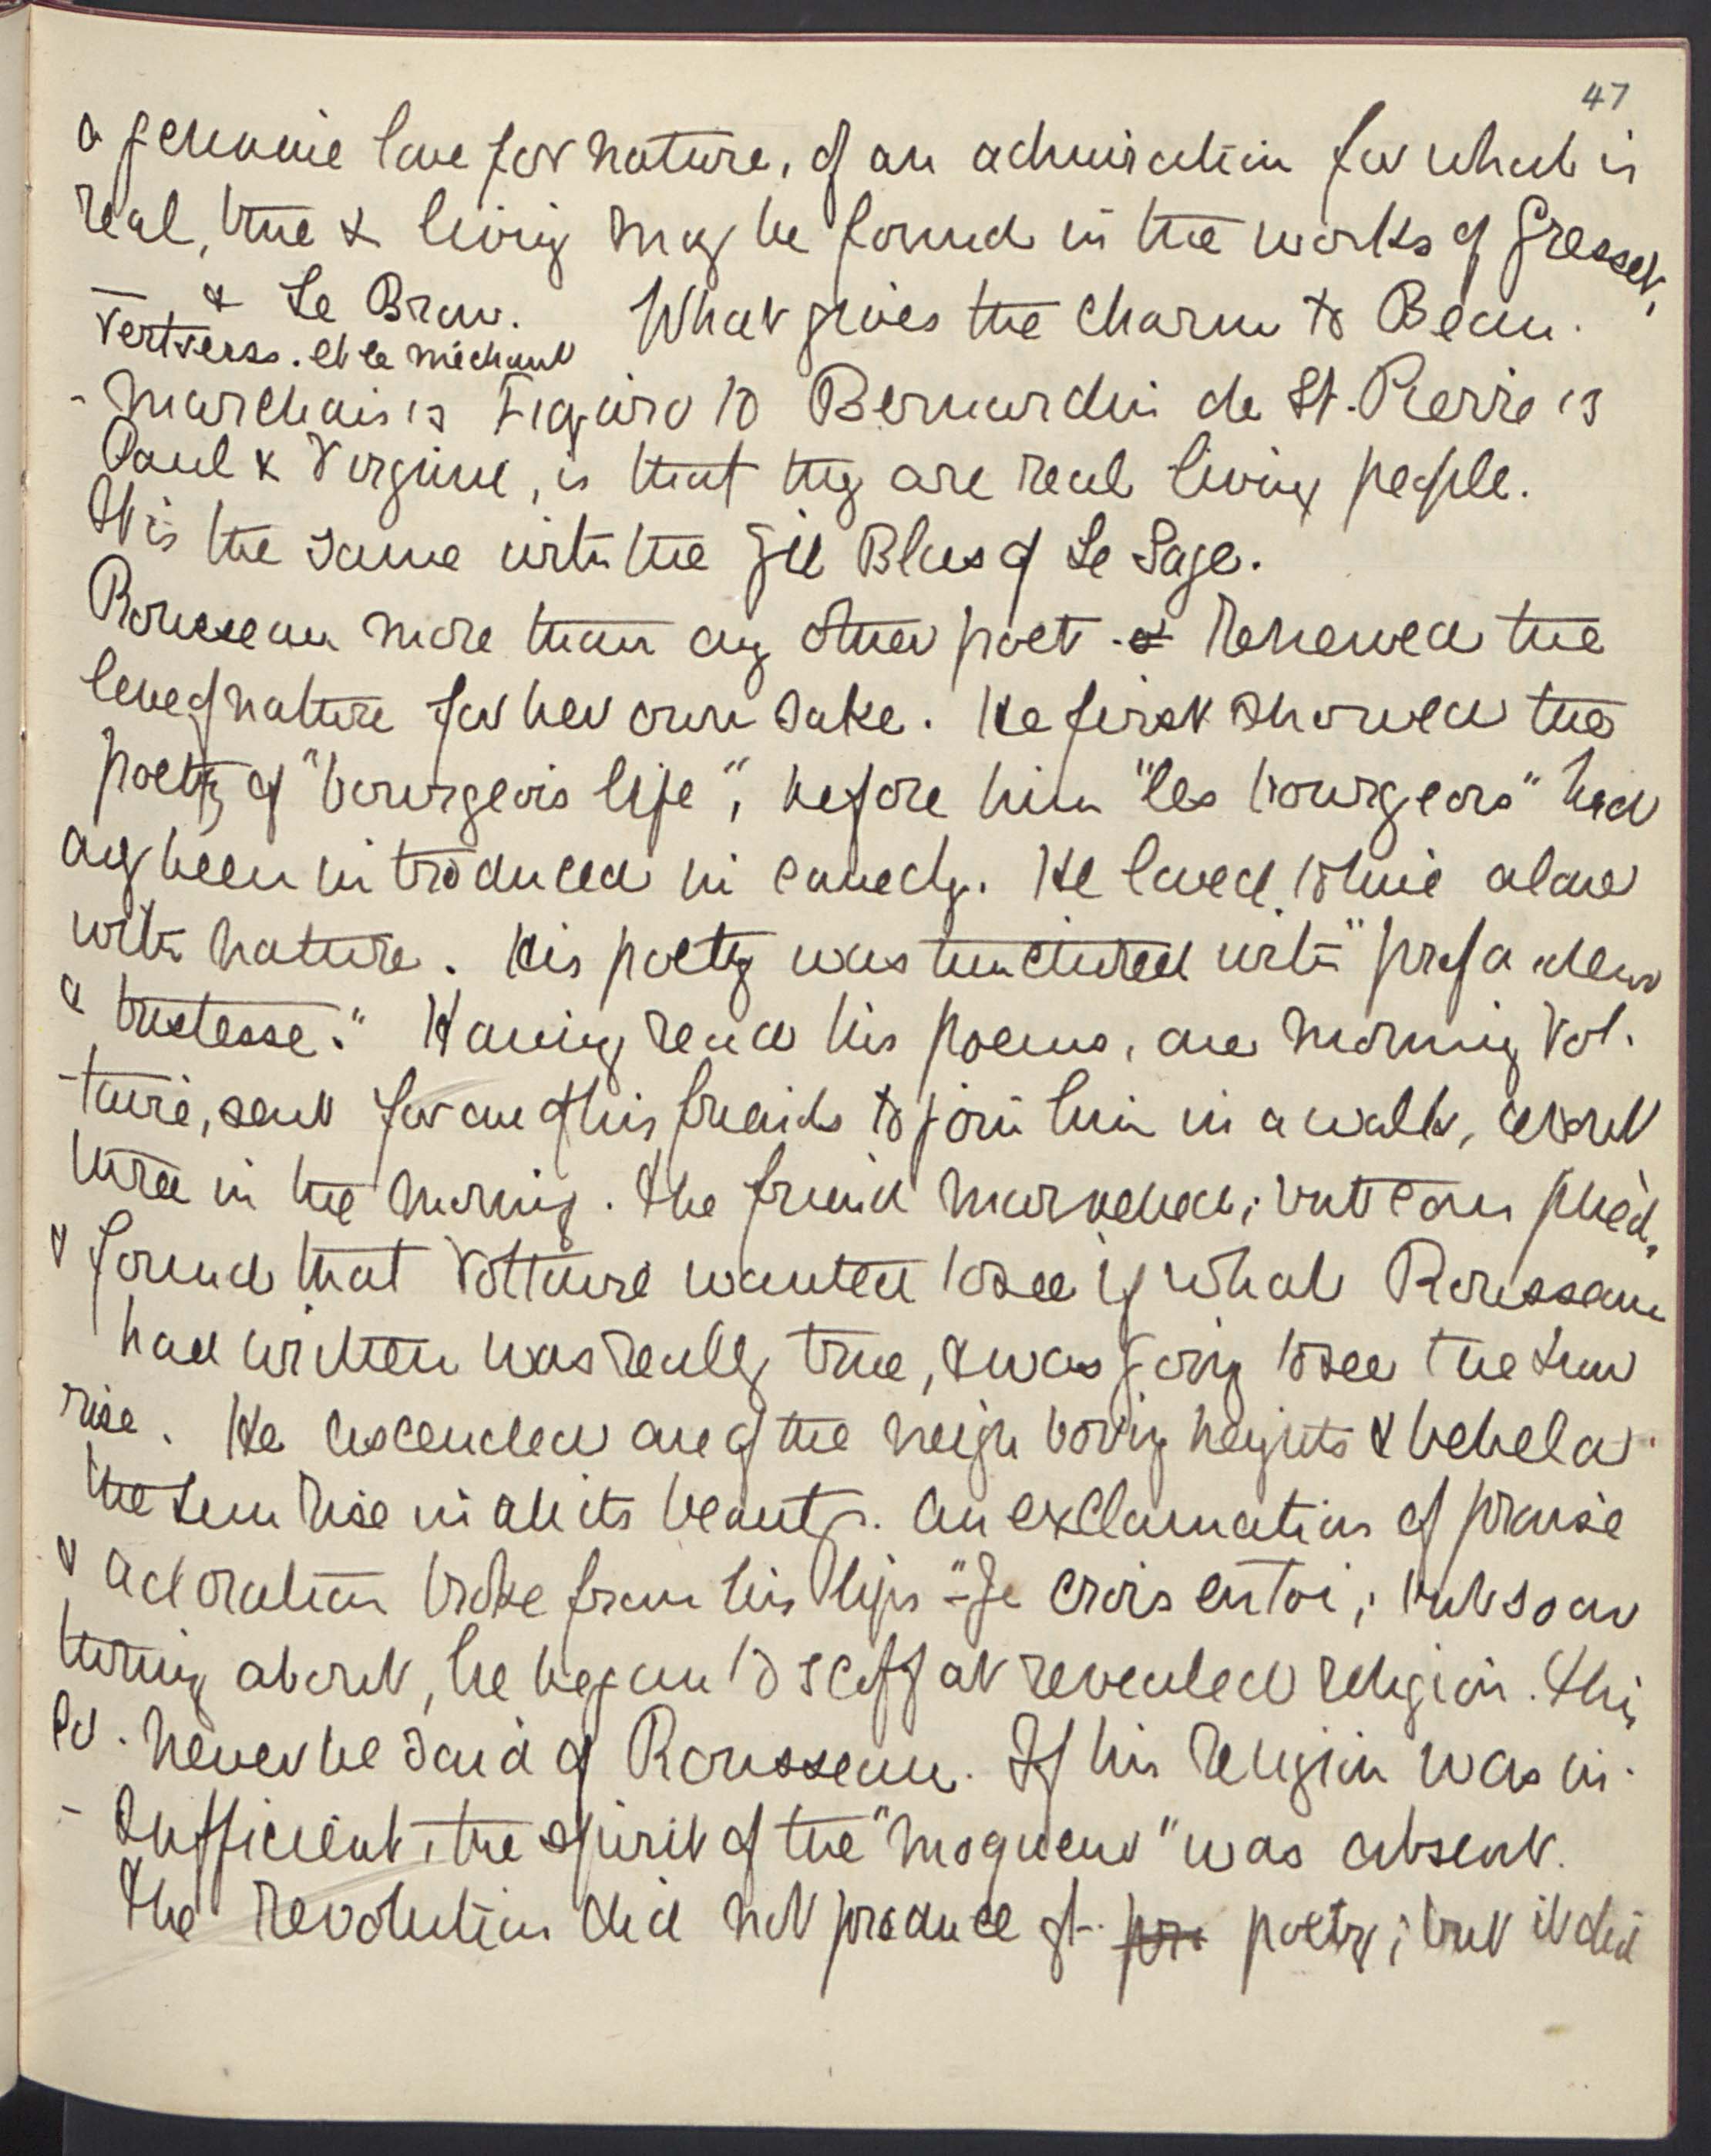 47
a genuine love for nature, of an admiration for what is
real, true & living may be found in the works of Gresset,
— & Le Brun. What gives the charm to Beau-
Vertverss. et le méchant
- marchais's Figaro to Bernardin de St. Pierre's
Paul & Virginie, is that they are real living people.
It is the same with the Gil Blas of Le Sage.
Rousseau more than any other poet renewed the
love of nature for her own sake. He first showed the
poetry of "bourgeois life", before him "les bourgeois" had
only been introduced in comedy. He loved to live alone
with nature. His poetry was tinctured with "profondeur
& tristesse." Having read his poems, one morning Vol-
-taire, sent for one of his friends to join him in a walk, about
three in the morning. The friend marvelled; but complied,
& found that Voltaire wanted to see if what Rousseau
had written was really true, & was going to see the sun
rise. He ascended one of the neighboring heights & beheld
the sun rise in all its beauty. An exclamation of praise
& adoration broke from his lips "Je crois en toi; but soon
turning about, he began to scoff at revealed religion. This
cd. never be said of Rousseau. If his religion was in-
- sufficient, the spirit of the "moqueur" was absent.
The revolution did not produce gt. poetry; but it did